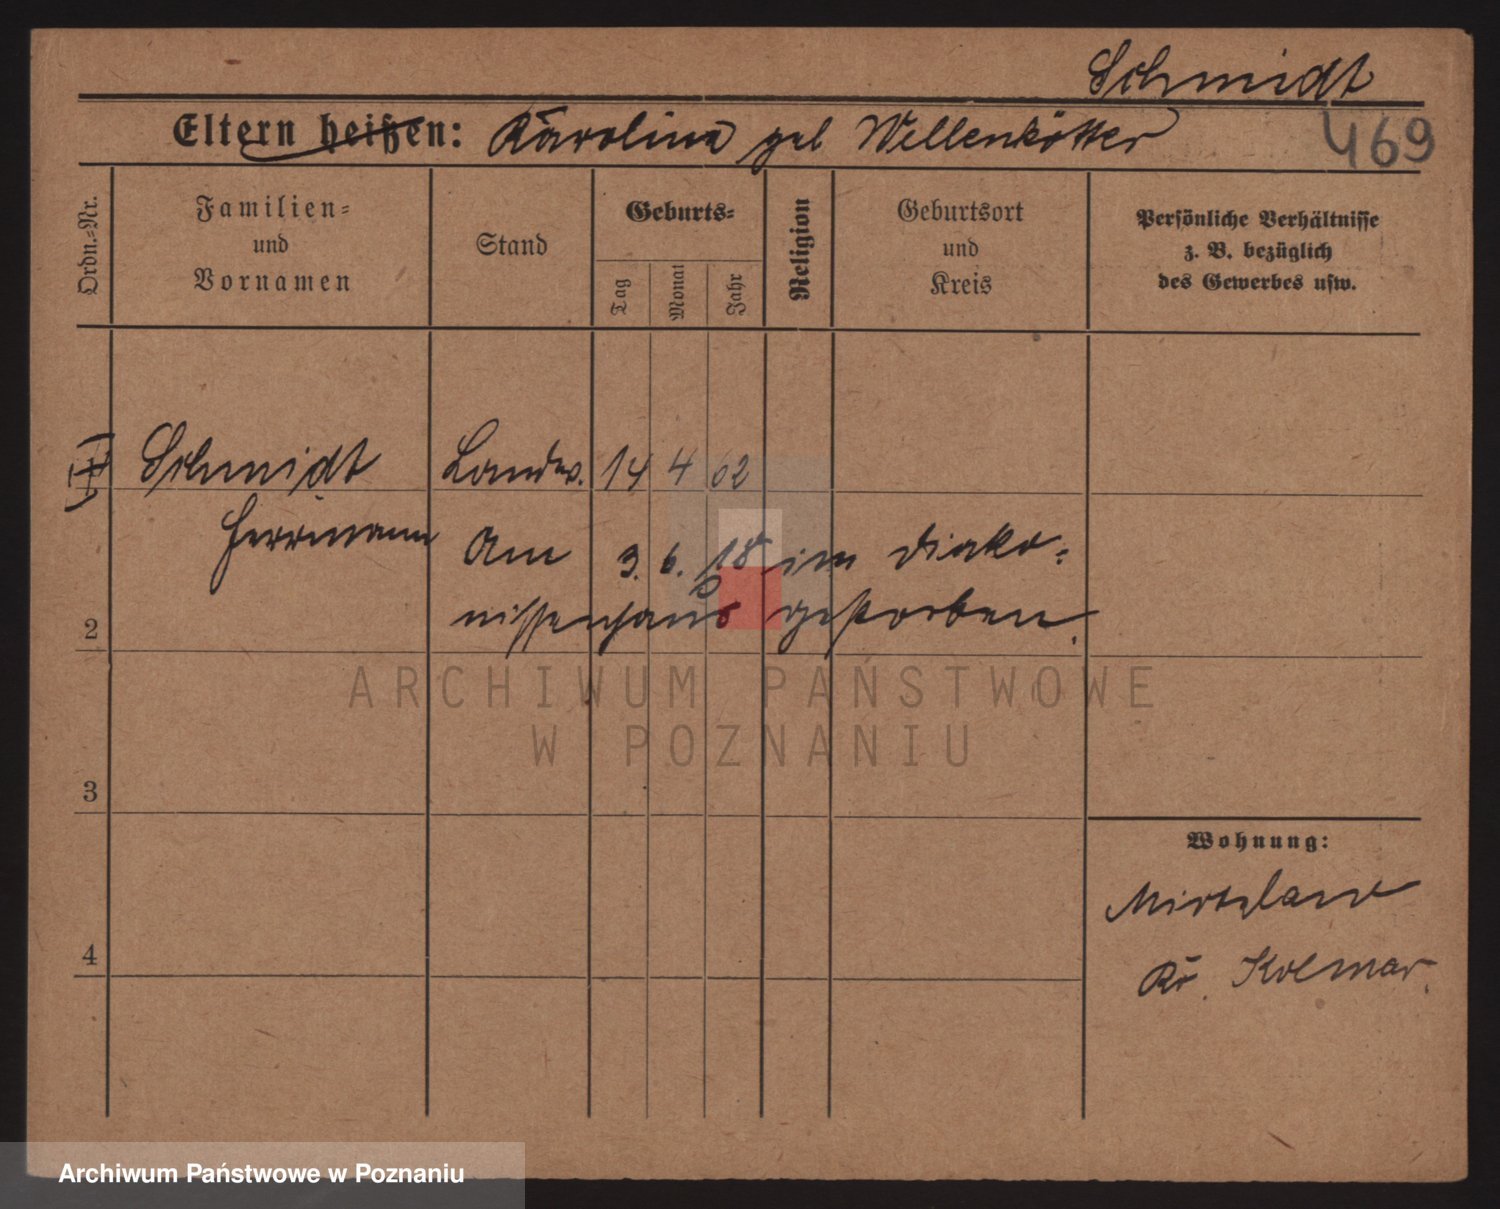 Schmidt
Eltern heißen: Karolina geb Wellenkötter
469
Ordn.-Nr.
Familien-
und
Vornamen
Stand
Geburts-
Tag
Monat
Jahr
Religion
Geburtsort
und
Kreis
Persönliche Verhältnisse
z. B. bezüglich
des Gewerbes usw.
Schmidt Landw. 14 4 62
Herrmann
Am 3. 6. 18 im Diako-
nissenhaus gestorben.
2
ARCHIWUM PAŃSTWOWE
W POZNANIU
3
Wohnung:
4
Kr. Kolmar.
Archiwum Państwowe w Poznaniu